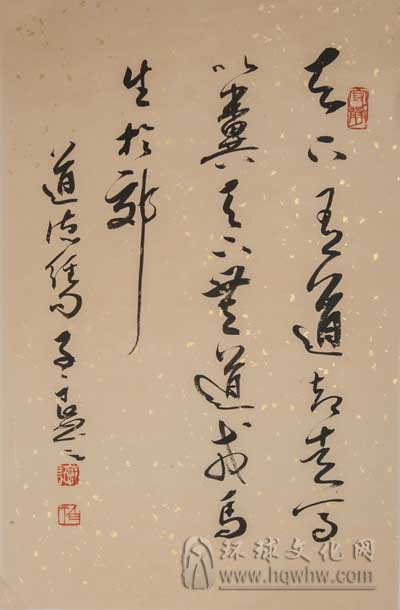 天下有道却走马
以糞天下無道戎馬
生於郊
道德經句
环球文化网
www.hqwhw.com